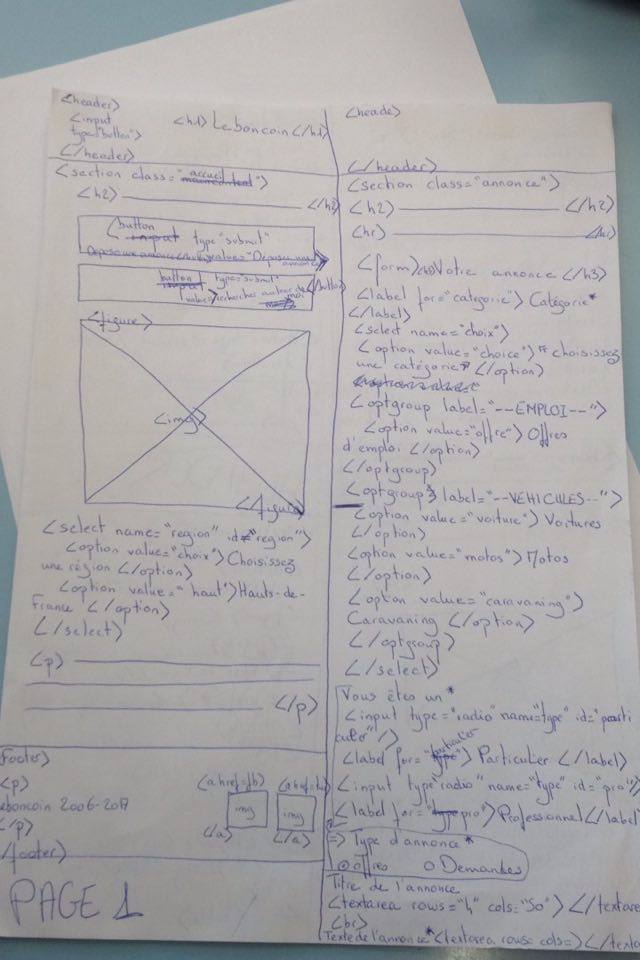 <header>
<input
type="button">
<h1> Leboncoin </h1>
</header>
<section class="accueil">
<h2> </h2>
<button
type="submit"
Déposer une annonce </button>
<button type="submit"
rechercher autour de moi </button>
<figure>
<img>
</figure>
<select name="region" id="region">
<option value="choix"> Choisissez
une région </option>
<option value="haut"> Hauts-de-
France </option>
</select>
<p>
</p>
footer>
<p>
eboncoin 2006-2017
</p>
/footer>
<a href=fb>
img
</a>
<a href=
img
</a>
PAGE 1
<heade>
</header>
<section class="annonce">
<h2> </h2>
<hr> </hr>
<form> <h3> Votre annonce </h3>
<label for="categorie"> Catégorie*
</label>
<select name="choix">
<option value="choice"> "choisissez
une catégorie" </option>
<optgroup label="--EMPLOI--">
<option value="offre"> Offres
d'emploi </option>
</optgroup>
<optgroup label="--VEHICULES--">
<option value="voiture"> Voitures
</option>
<option value="motos"> Motos
</option>
<option value="caravaning">
Caravaning </option>
</optgroup>
</select>
Vous êtes un *
<input type="radio" name="type" id="parti
culier"/>
<label for="particulier"> Particulier </label>
<input type="radio" name="type" id="pro">
<label for="pro"> Professionnel </label
=> Type d'annonce*
offres Demandes
Titre de l'annonce
<textarea rows="4" cols="50"> </textare
<br>
Texte de l'annonce* <textarea rows= cols=> </texta